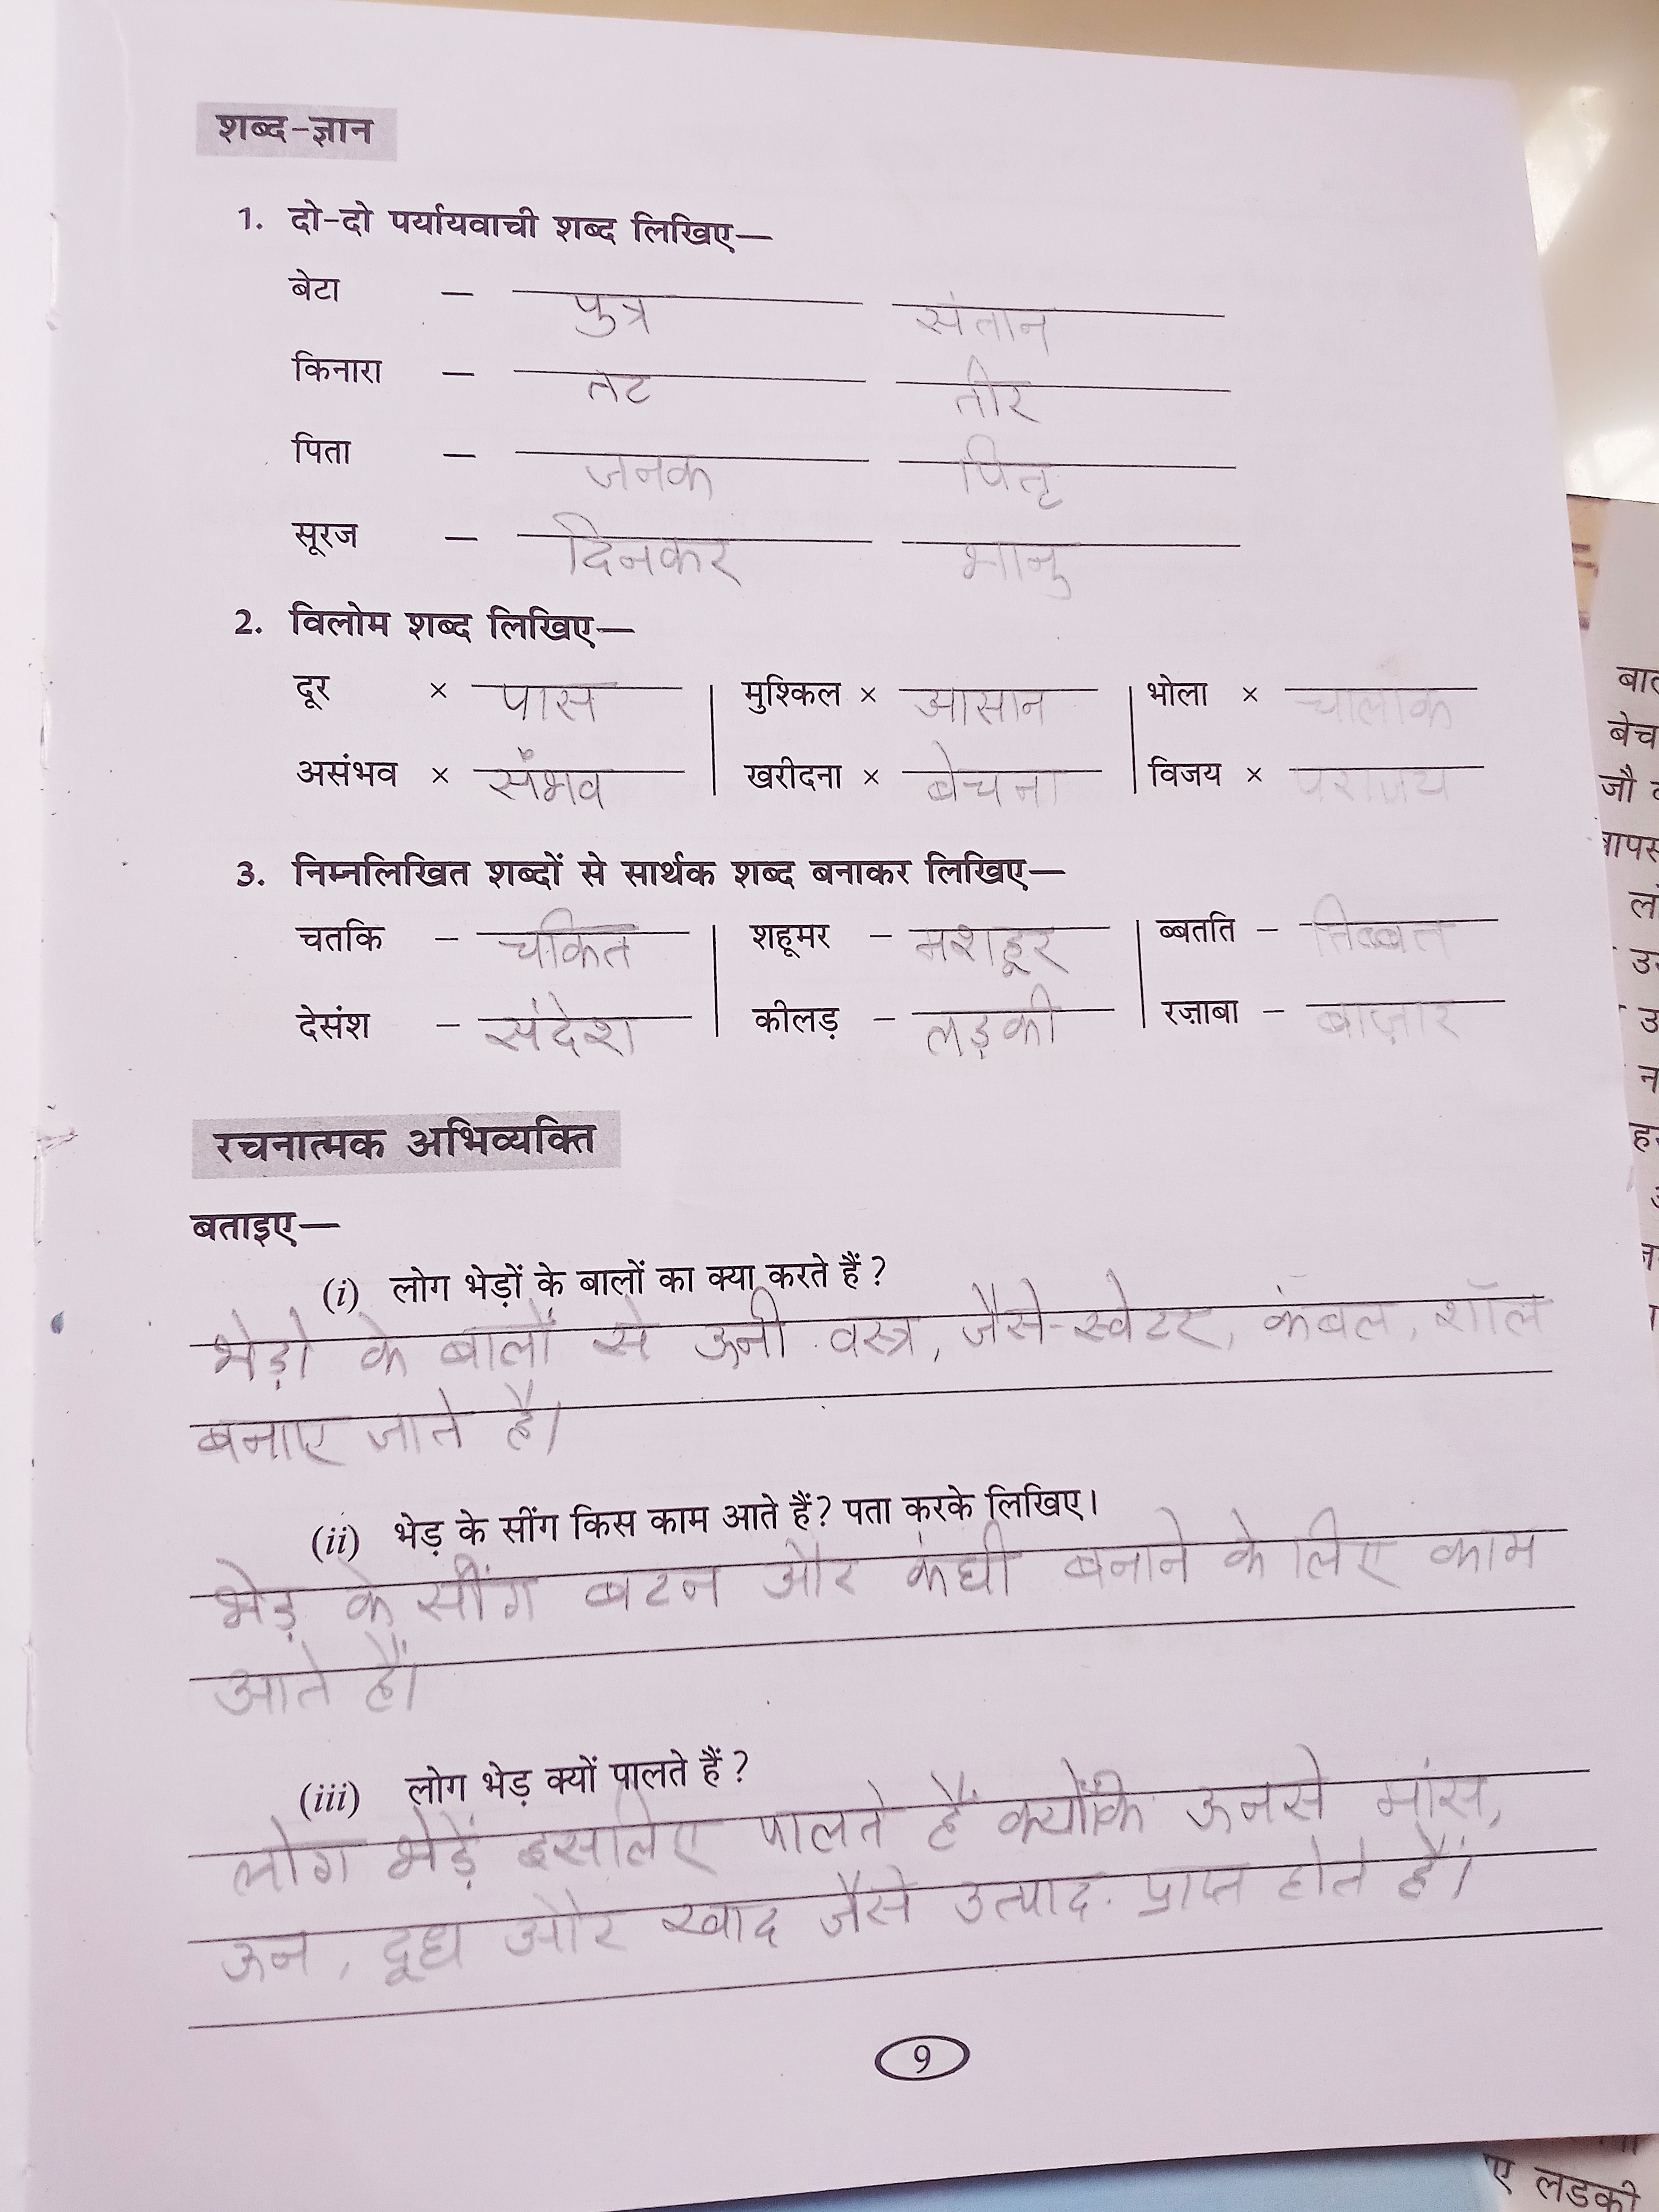 शब्द-ज्ञान
1. दो-दो पर्यायवाची शब्द लिखिए—
बेटा – पुत्र संतान
किनारा – तट तीर
पिता – जनक पितृ
सूरज – दिनकर भानु
2. विलोम शब्द लिखिए—
दूर × पास | मुश्किल × आसान | भोला × चालाक
असंभव × संभव | खरीदना × बेचना | विजय × पराजय
3. निम्नलिखित शब्दों से सार्थक शब्द बनाकर लिखिए—
चतकि – चकित | शहूमर – मशहूर | ब्बतति – तिब्बत
देसंश – संदेश | कीलड़ – लड़की | रज़ाबा – बाज़ार
रचनात्मक अभिव्यक्ति
बताइए—
(i) लोग भेड़ों के बालों का क्या करते हैं?
भेड़ो के बालों से ऊनी वस्त्र, जैसे-स्वेटर, कंबल, शॉल
बनाए जाते है।
(ii) भेड़ के सींग किस काम आते हैं? पता करके लिखिए।
भेड़ के सींग बटन और कंघी बनाने के लिए काम
आते हैं।
(iii) लोग भेड़ क्यों पालते हैं?
लोग भेड़ें इसलिए पालते हैं क्योंकि ऊनसे मांस,
ऊन, दूध और खाद जैसे उत्पाद प्राप्त होते हैं।
9
बेच
जौ
उ
न
ए लडकी